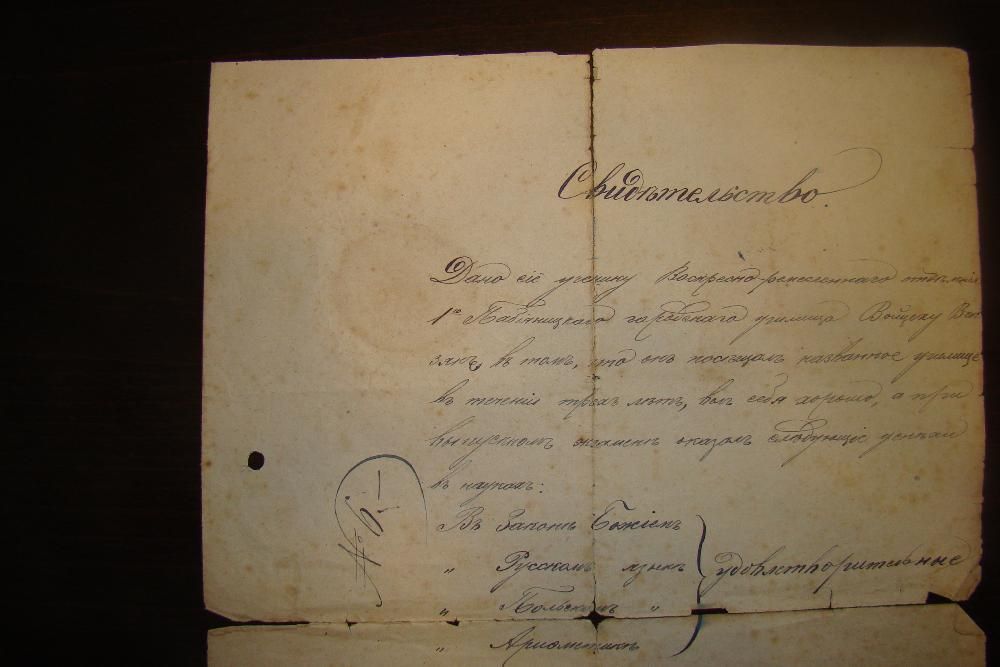 Свидѣтельство.
Дано сіе ученику Воскресно-ремесленнаго отдѣленія
1го Пабяницкаго городскаго училища Войцеху
въ томъ, что онъ посѣщалъ названное училище
въ теченіи трехъ лѣтъ, велъ себя хорошо, а при
выпускномъ экзаменѣ оказалъ слѣдующіе успѣхи
въ наукахъ:
Въ Законѣ Божіемъ
„ Русскомъ языкѣ } удовлетворительные
„ Польскомъ „
„ Ариѳметикѣ